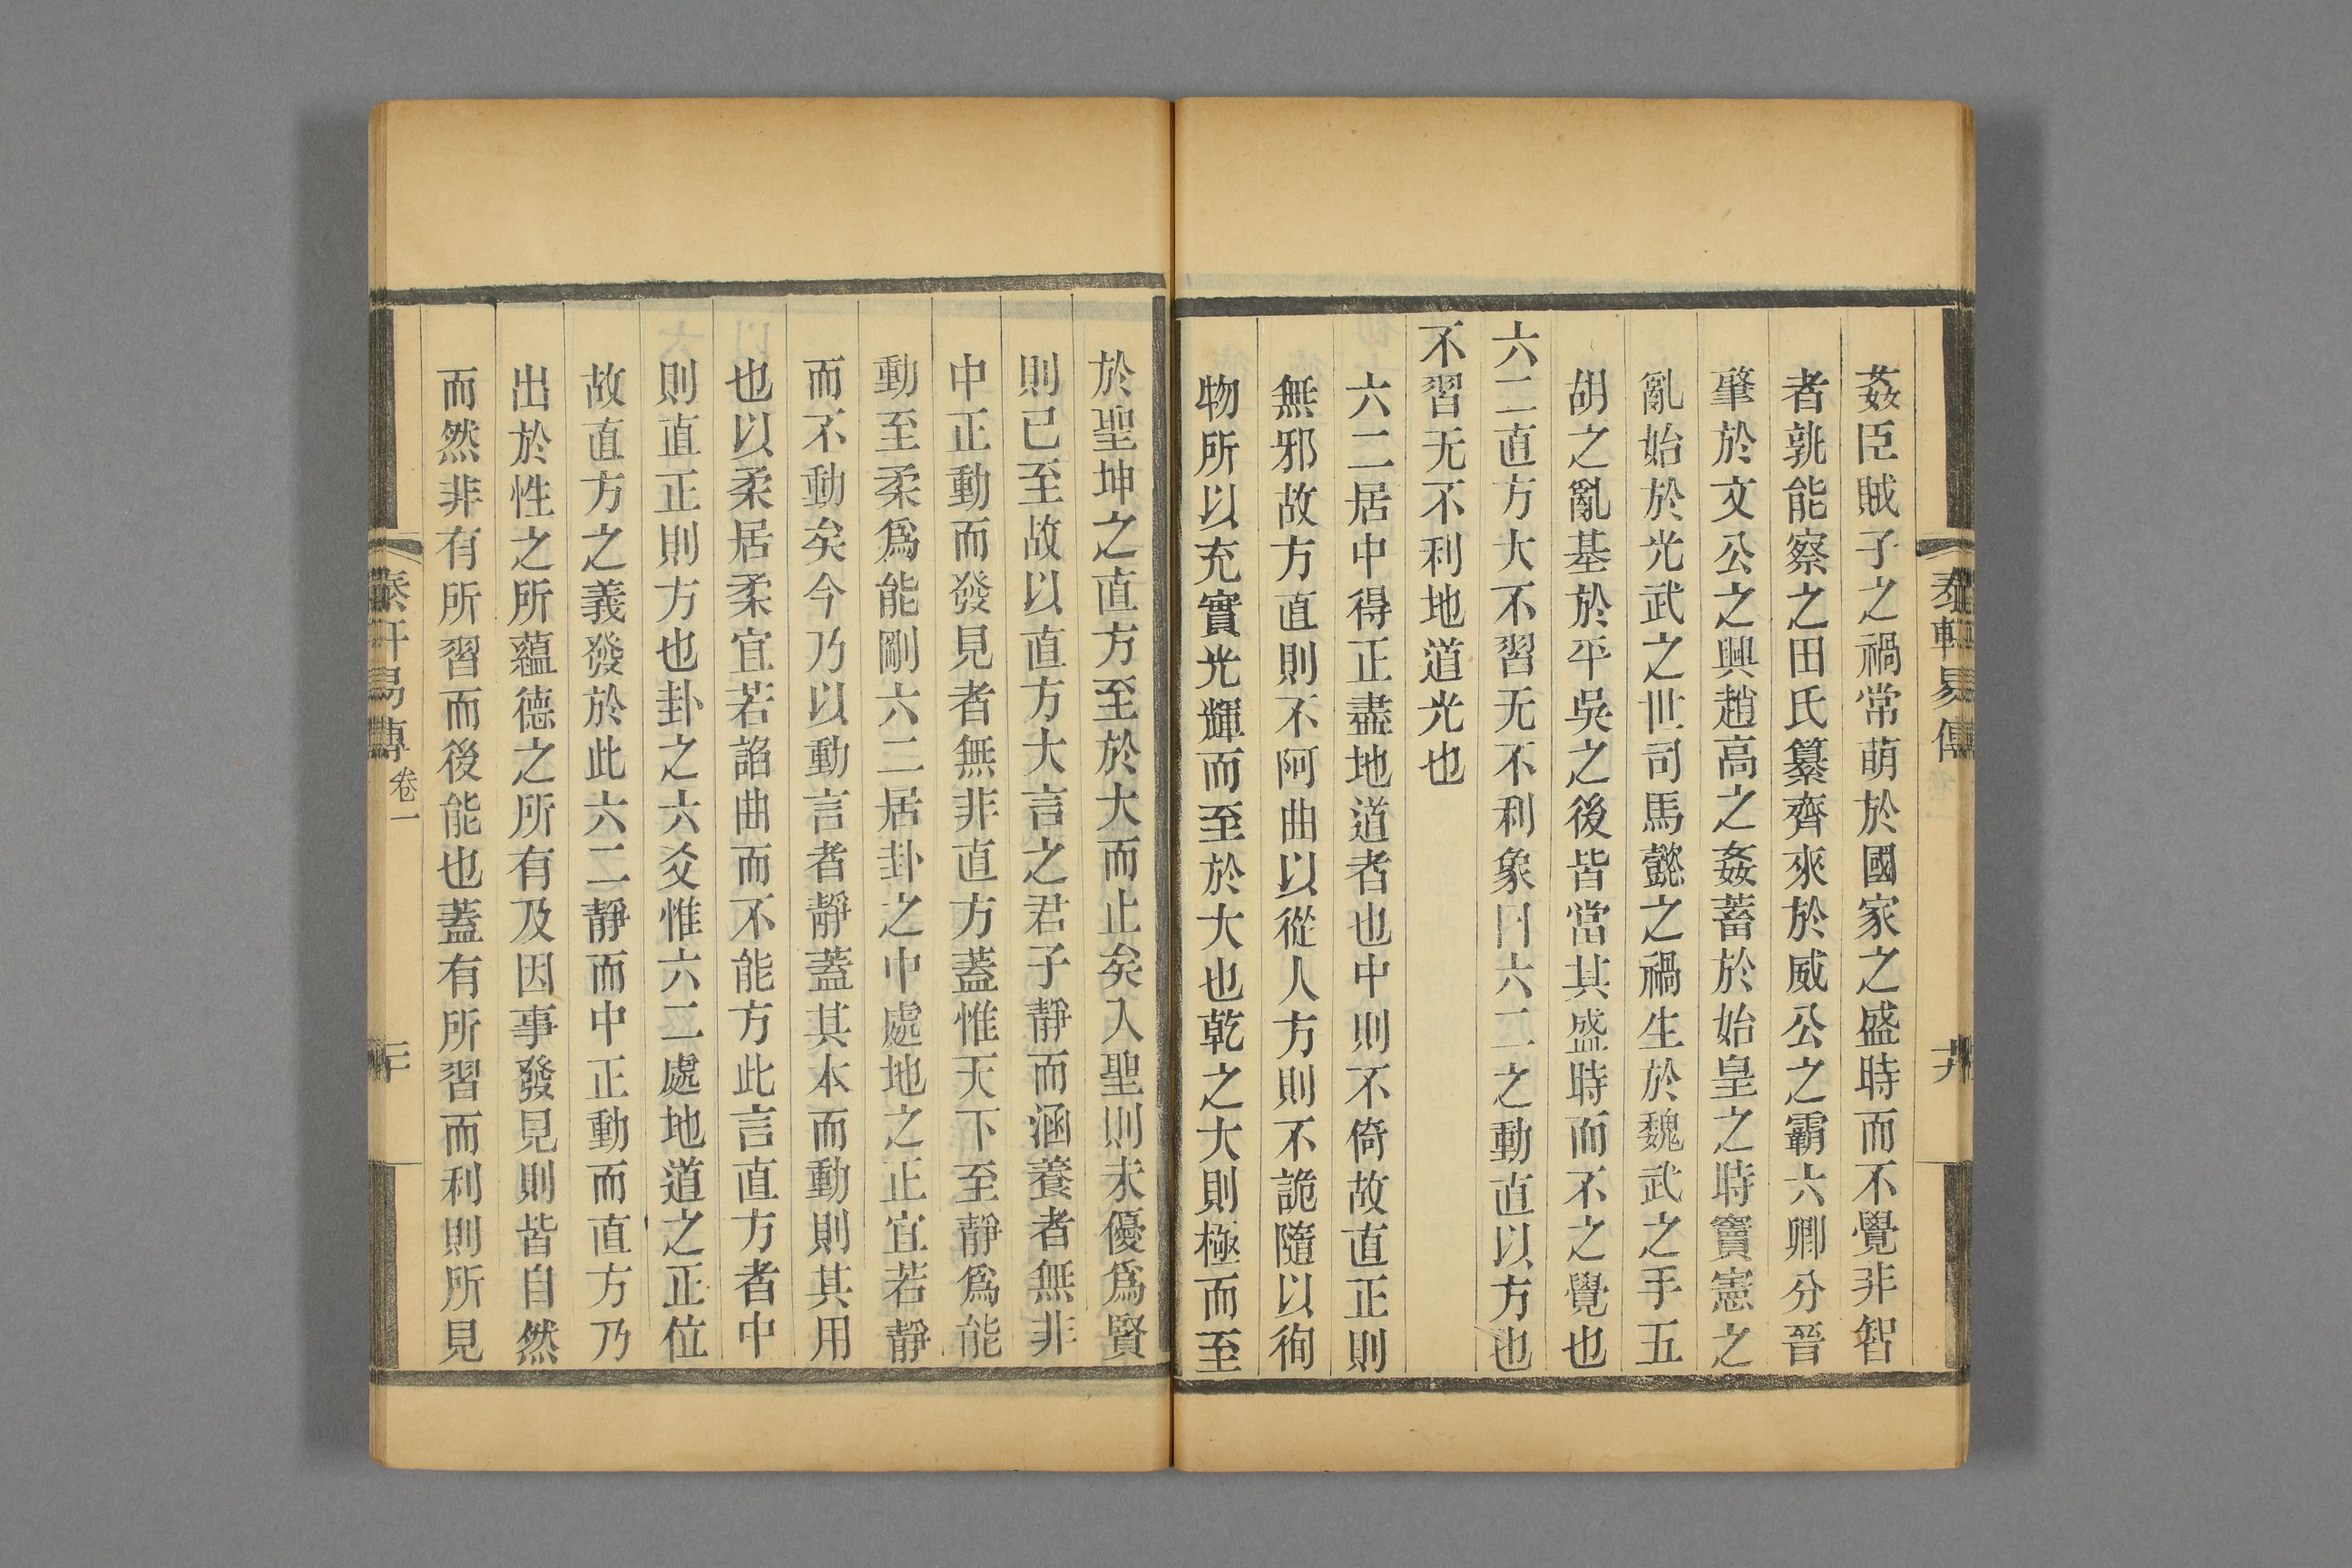 姦臣賊子之禍常萌於國家之盛時而不覺非智
者孰能察之田氏篡齊來於威公之霸六卿分晉
肇於文公之興趙高之姦蓄於始皇之時竇憲之
亂始於光武之世司馬懿之禍生於魏武之手五
胡之亂基於平吳之後皆當其盛時而不之覺也
六二直方大不習无不利象曰六二之動直以方也
不習无不利地道光也
六二居中得正盡地道者也中則不倚故直正則
無邪故方直則不阿曲以從人方則不詭隨以徇
物所以充實光輝而至於大也乾之大則極而至
於聖坤之直方至於大而止矣入聖則未優爲賢
則已至故以直方大言之君子靜而涵養者無非
中正動而發見者無非直方蓋惟天下至靜爲能
動至柔爲能剛六二居卦之中處地之正宜若靜
而不動矣今乃以動言者靜蓋其本而動則其用
也以柔居柔宜若諂曲而不能方此言直方者中
則直正則方也卦之六爻惟六二處地道之正位
故直方之義發於此六二靜而中正動而直方乃
出於性之所蘊德之所有及因事發見則皆自然
而然非有所習而後能也蓋有所習而利則所見
易傳 卷一